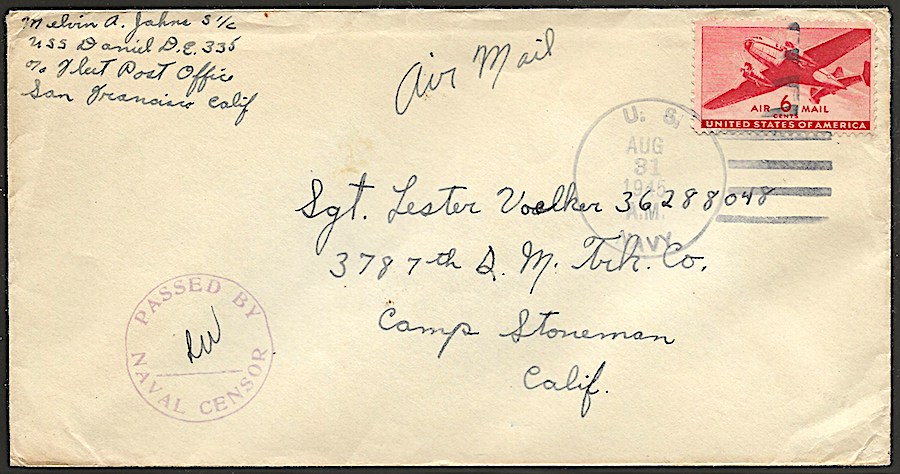 Melvin A. Jahns S 1/c
USS Daniel D.E. 335
c/o Fleet Post Office
San Francisco Calif
Air Mail
AIR 6 MAIL
CENTS
UNITED STATES OF AMERICA
U. S.
AUG
31
1945
A.M.
NAVY
Sgt. Lester Voelker 36288048
3787th Q. M. Trk. Co.
Camp Stoneman
Calif.
PASSED BY
NAVAL CENSOR